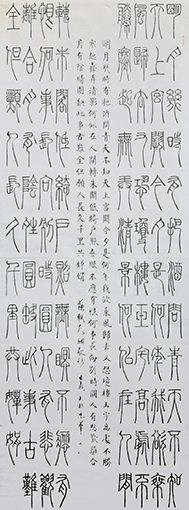 明月幾時有把酒問青天不知
天上宮闕今夕是何年我欲乘
風歸去又恐瓊樓玉宇高處不
勝寒起舞弄清影何似在人間
轉朱閣低綺戶照無眠不應有
恨何事長向別時圓人有悲歡
離合月有陰晴圓缺此事古難
全但願人長久千里共嬋娟
明月幾時有把酒問青天不知天上宮闕今夕是何年我欲乘風歸去又恐瓊樓玉宇高處不勝
寒起舞弄清影何似在人間轉朱閣低綺戶照無眠不應有恨何事長向別時圓人有悲歡離合
月有陰晴圓缺此事古難全但願人長久千里共嬋娟